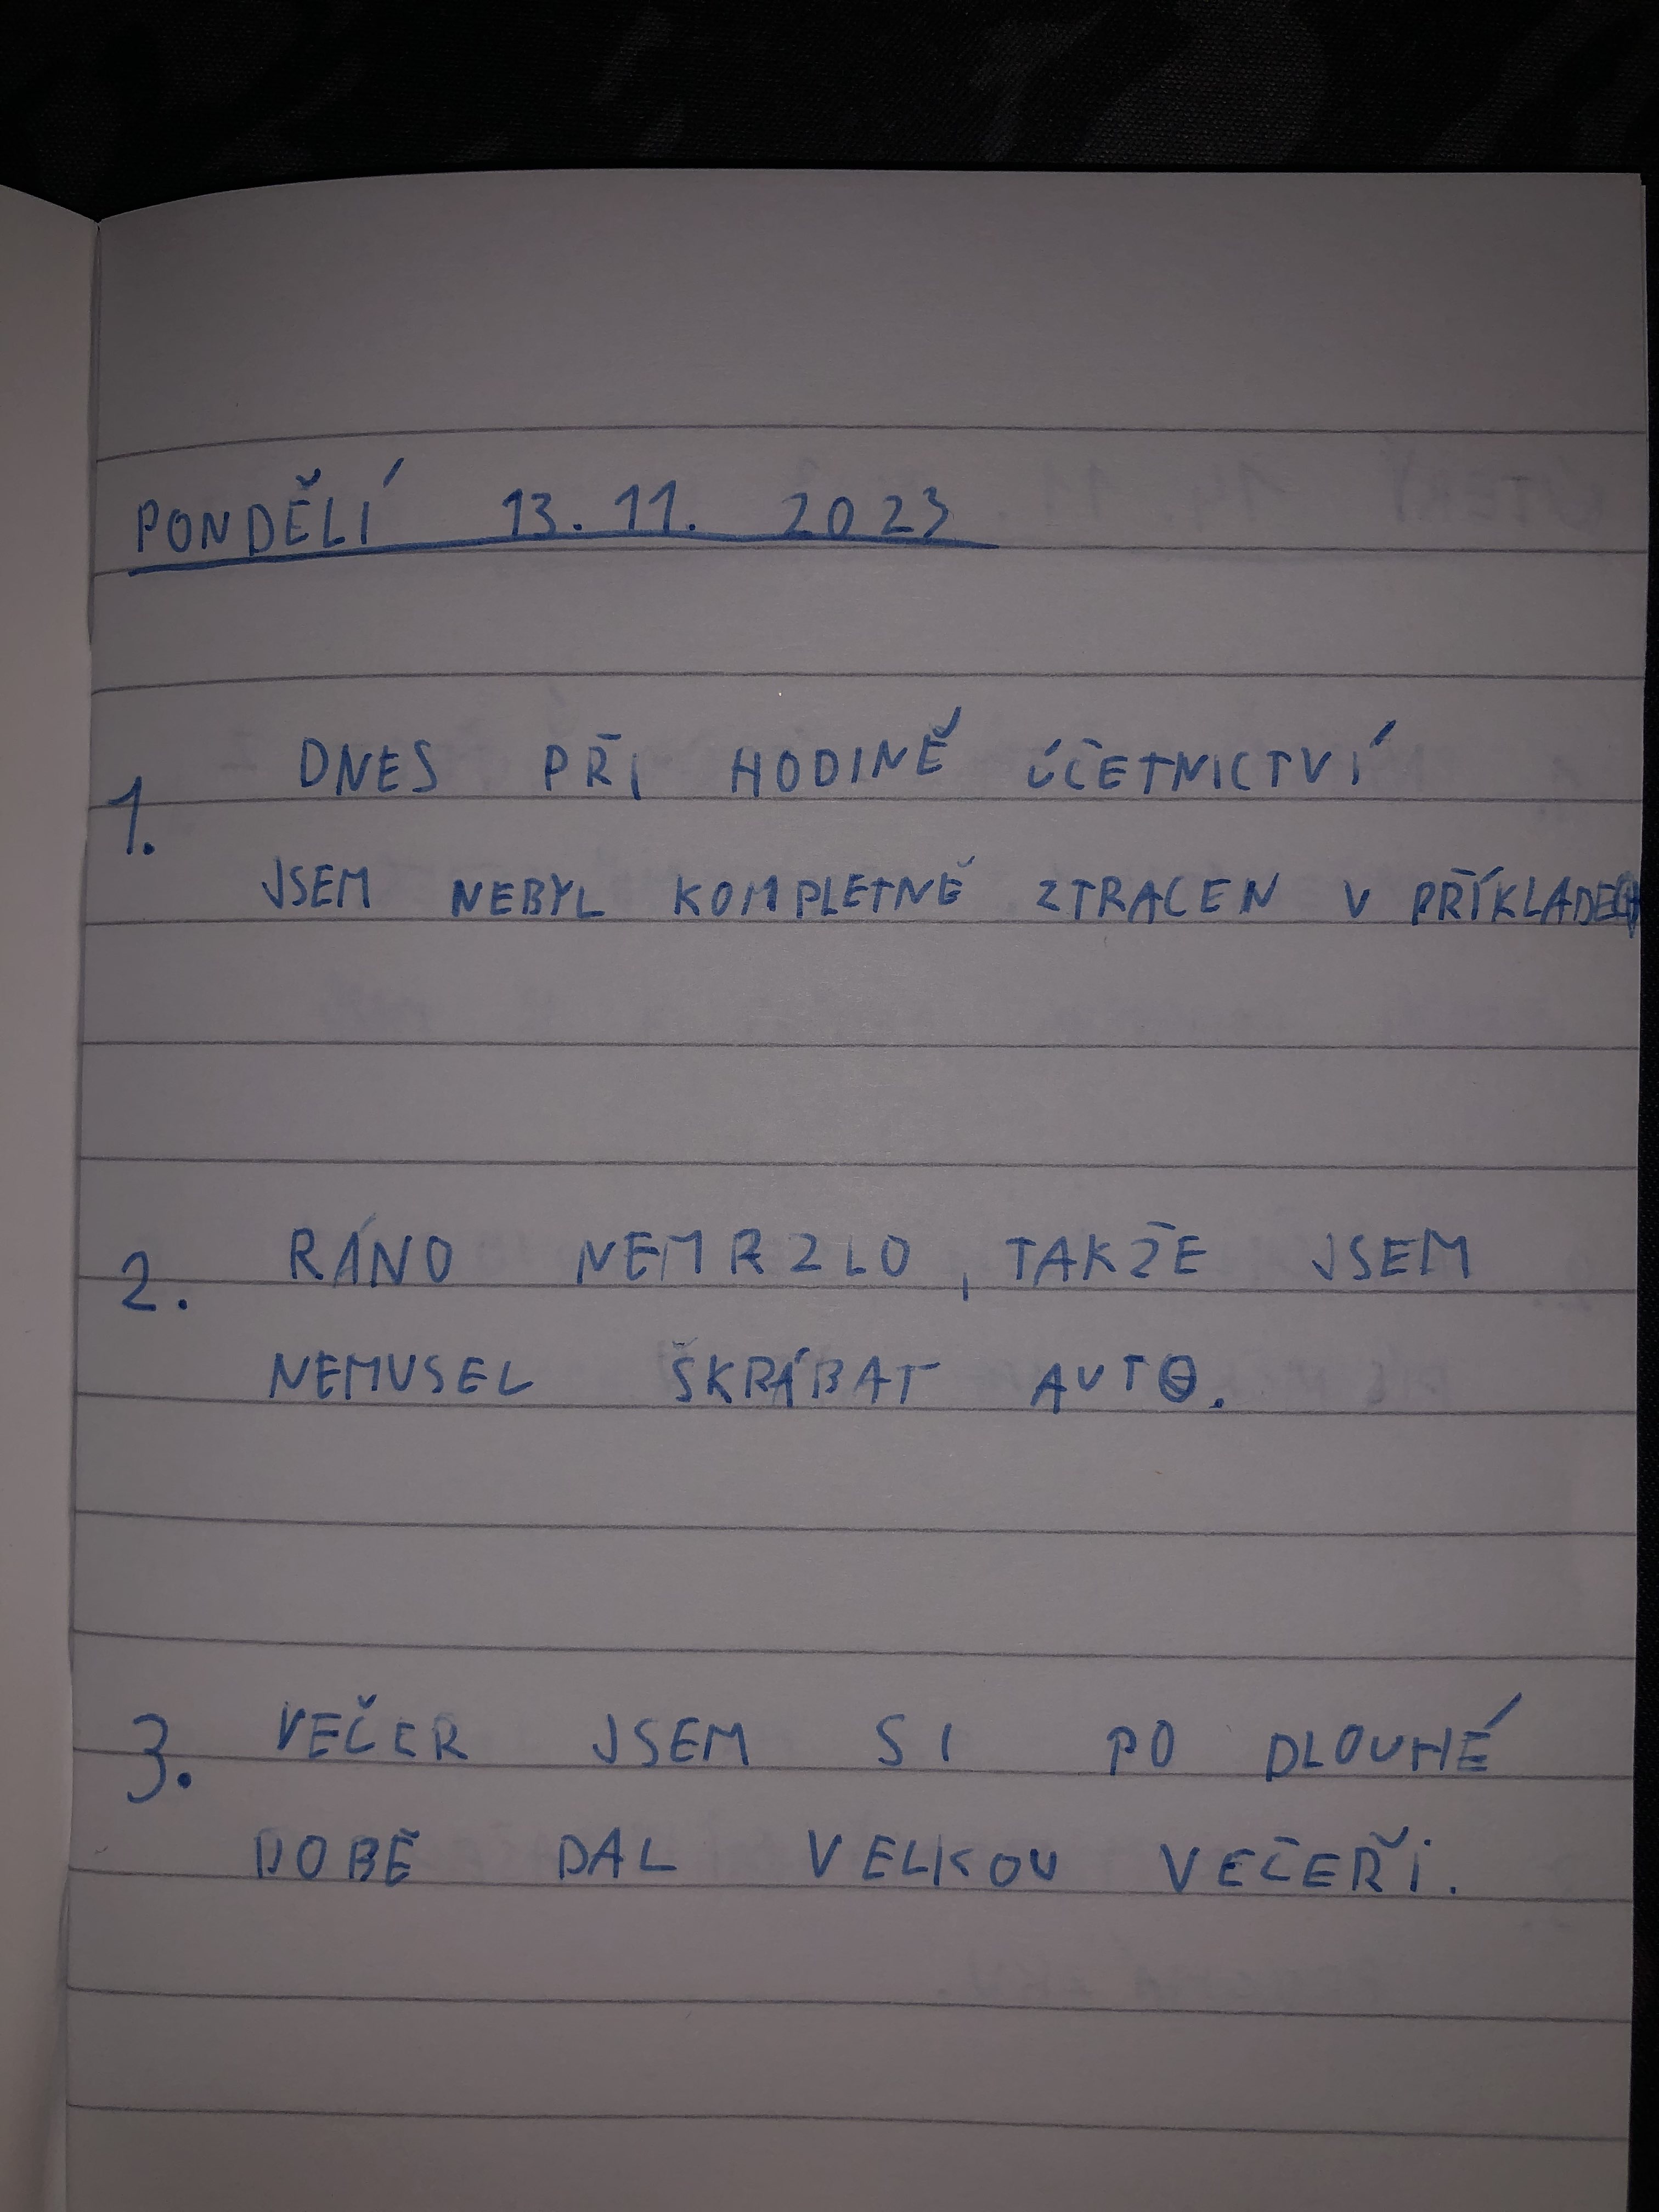 PONDĚLÍ 13. 11. 2023
1. DNES PŘI HODINĚ ÚČETNICTVÍ
JSEM NEBYL KOMPLETNĚ ZTRACEN V PŘÍKLADECH
2. RÁNO NEMRZLO, TAKŽE JSEM
NEMUSEL ŠKRÁBAT AUTO.
3. VEČER JSEM SI PO DLOUHÉ
DOBĚ DAL VELKOU VEČEŘI.